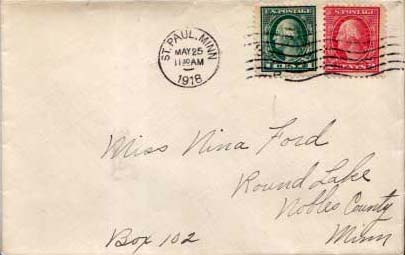 ST. PAUL, MINN
MAY 25
11 30 AM
1918
U.S. POSTAGE
1 CENT 1
U.S. POSTAGE
Miss Nina Ford
Round Lake
Nobles County
Minn
Box 102